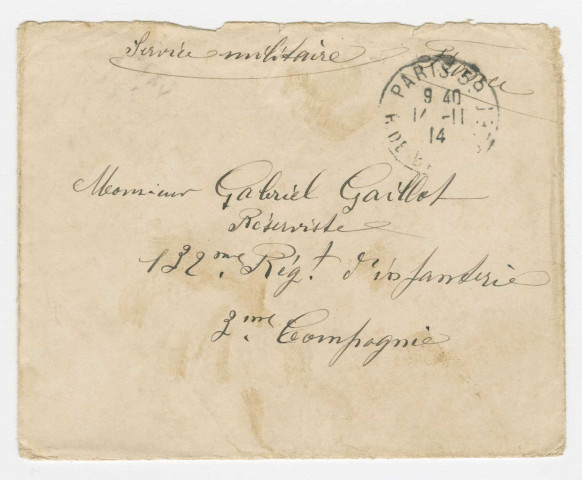 Service militaire
PARIS
9 40
-11
14
R. DE
Monsieur Gabriel Gaillot
Réserviste
132me Régt d'infanterie
3me Compagnie